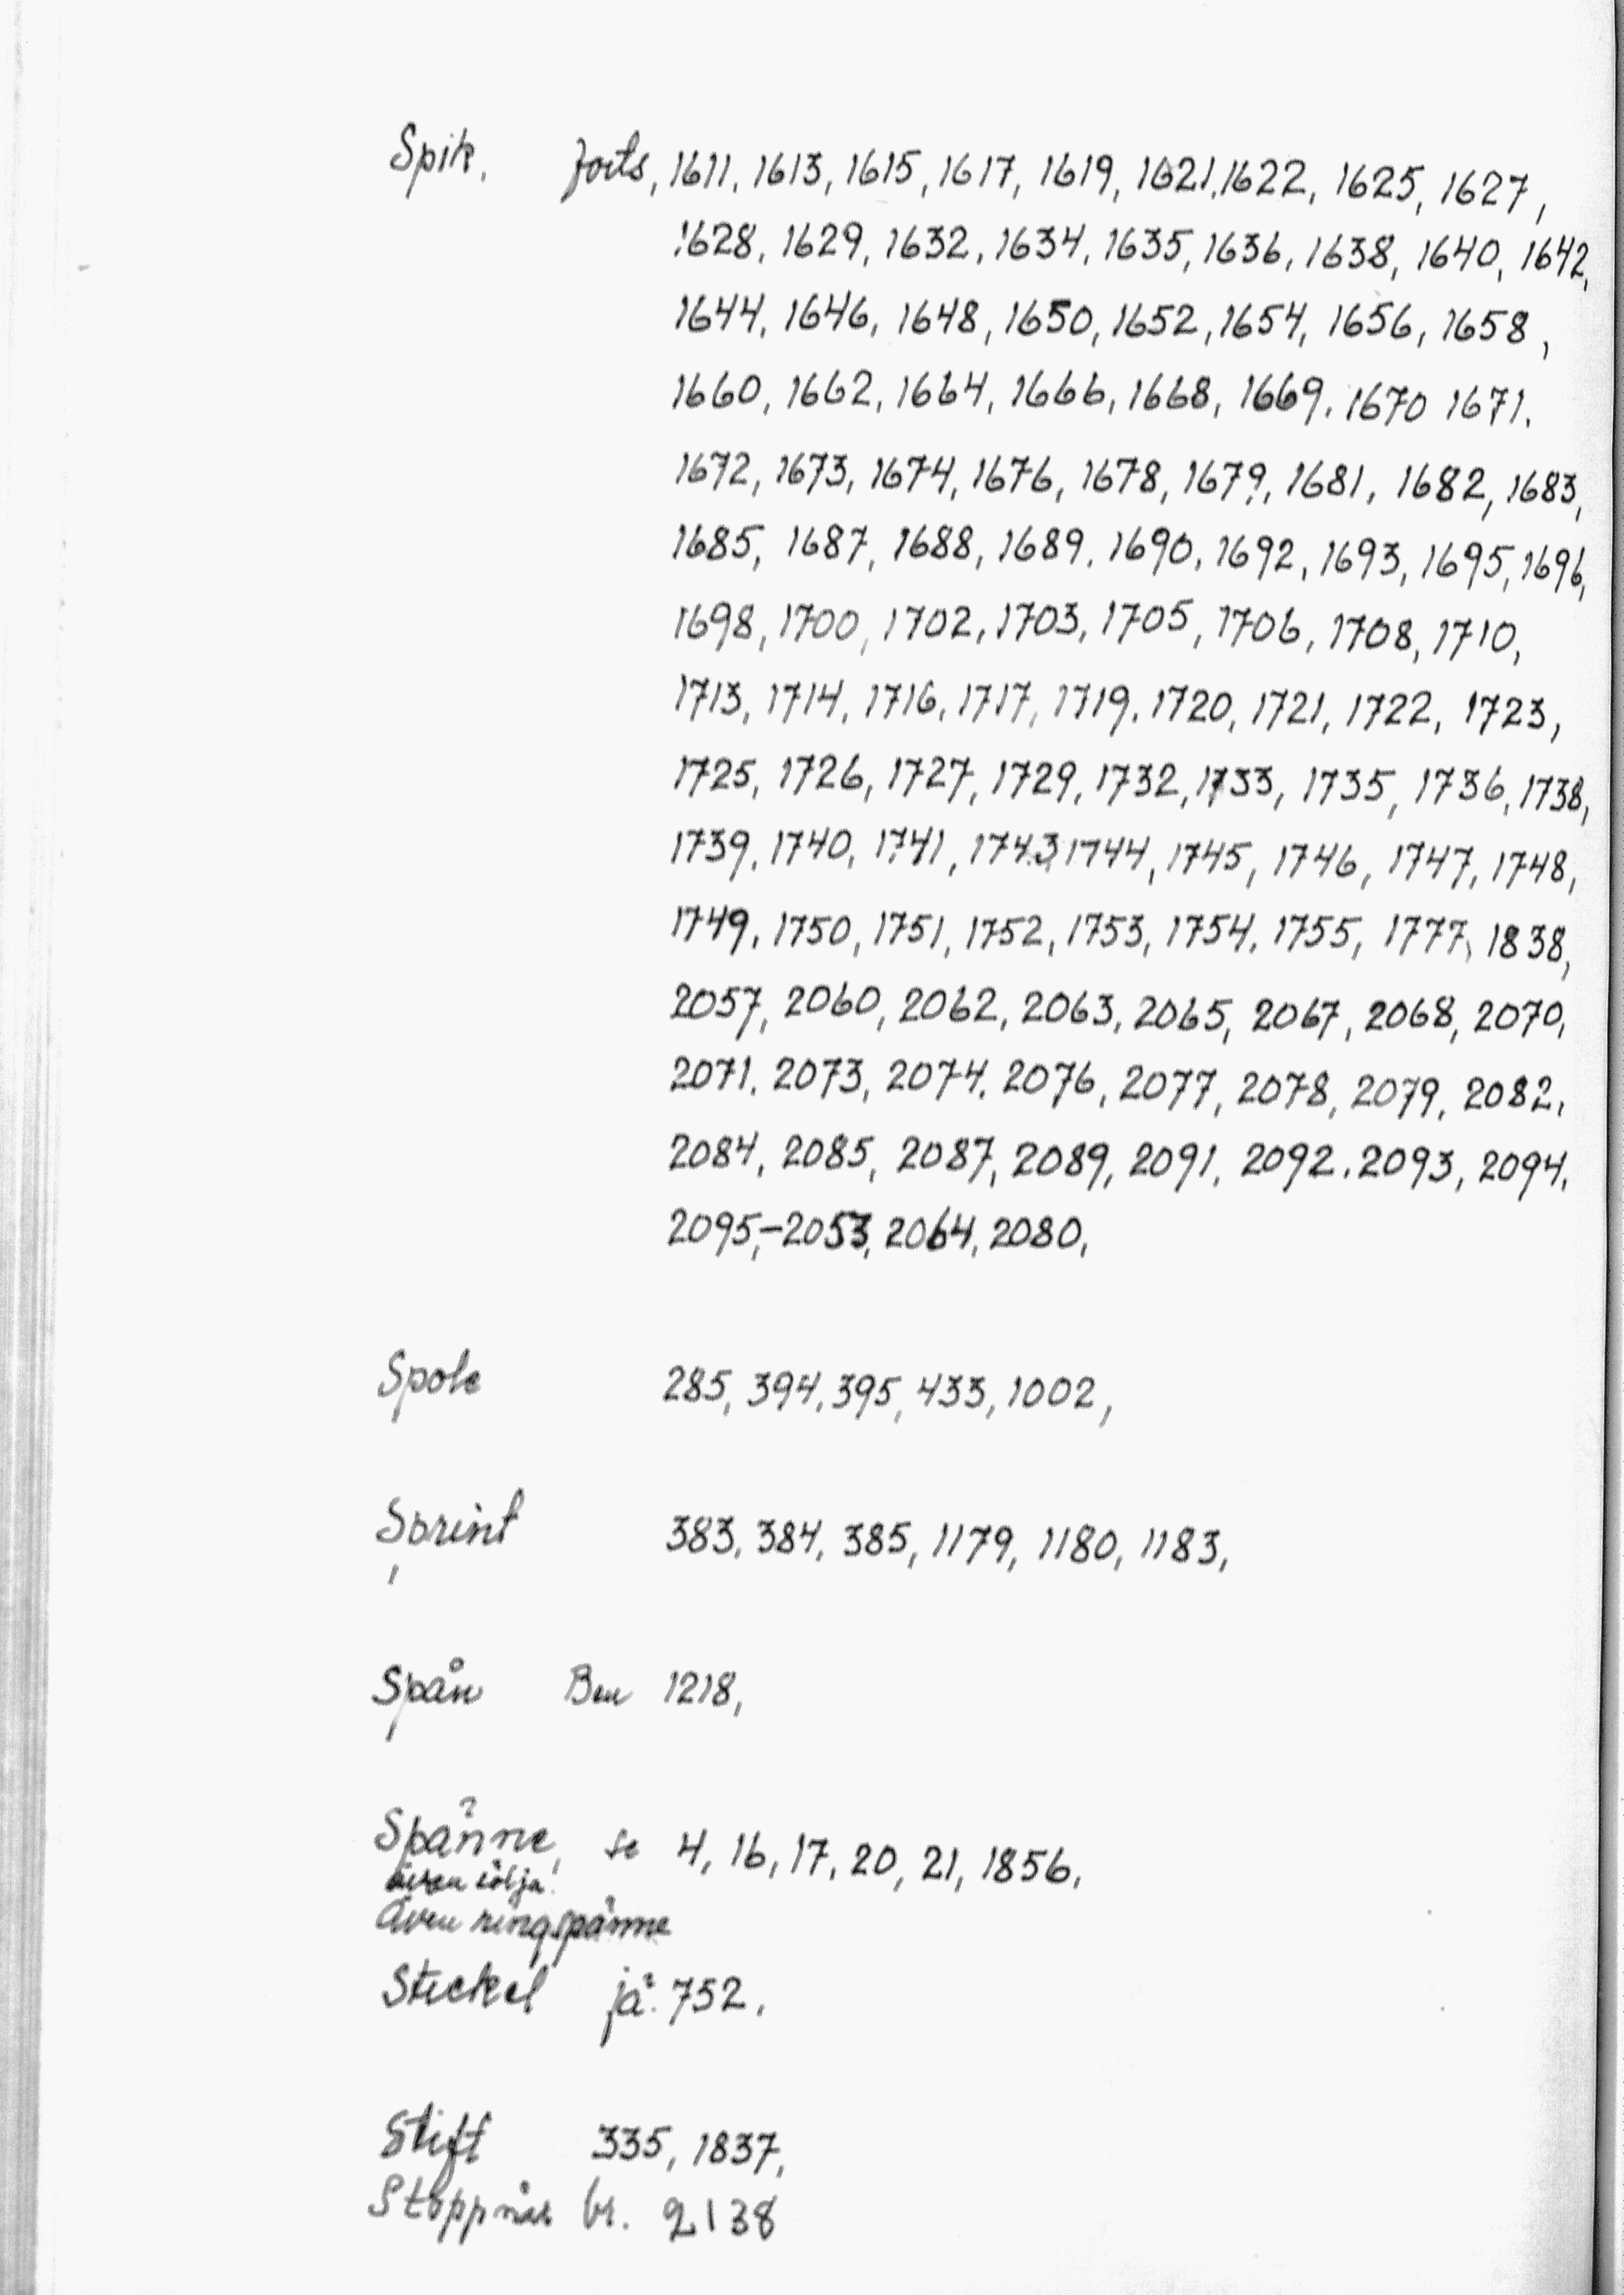 Spik. forts, 1611, 1613, 1615, 1617, 1619, 1621, 1622, 1625, 1627,
1628, 1629, 1632, 1634, 1635, 1636, 1638, 1640, 1642,
1644, 1646, 1648, 1650, 1652, 1654, 1656, 1658,
1660, 1662, 1664, 1666, 1668, 1669, 1670 1671.
1672, 1673, 1674, 1676, 1678, 1679, 1681, 1682, 1683,
1685, 1687, 1688, 1689, 1690, 1692, 1693, 1695, 1696,
1698, 1700, 1702, 1703, 1705, 1706, 1708, 1710,
1713, 1714, 1716, 1717, 1719, 1720, 1721, 1722, 1723,
1725, 1726, 1727, 1729, 1732, 1733, 1735, 1736, 1738,
1739, 1740, 1741, 1743, 1744, 1745, 1746, 1747, 1748,
1749, 1750, 1751, 1752, 1753, 1754, 1755, 1777, 1838,
2057, 2060, 2062, 2063, 2065, 2067, 2068, 2070,
2071, 2073, 2074, 2076, 2077, 2078, 2079, 2082,
2084, 2085, 2087, 2089, 2091, 2092, 2093, 2094,
2095,-2053, 2064, 2080,
Spole 285, 394, 395, 433, 1002,
Sprint 383, 384, 385, 1179, 1180, 1183,
Spån Ben 1218,
Spänne, se 4, 16, 17, 20, 21, 1856,
även sölja!
Även ringspänne
Stickel jä. 752.
Stift 335, 1837,
Stoppnål br. 2138